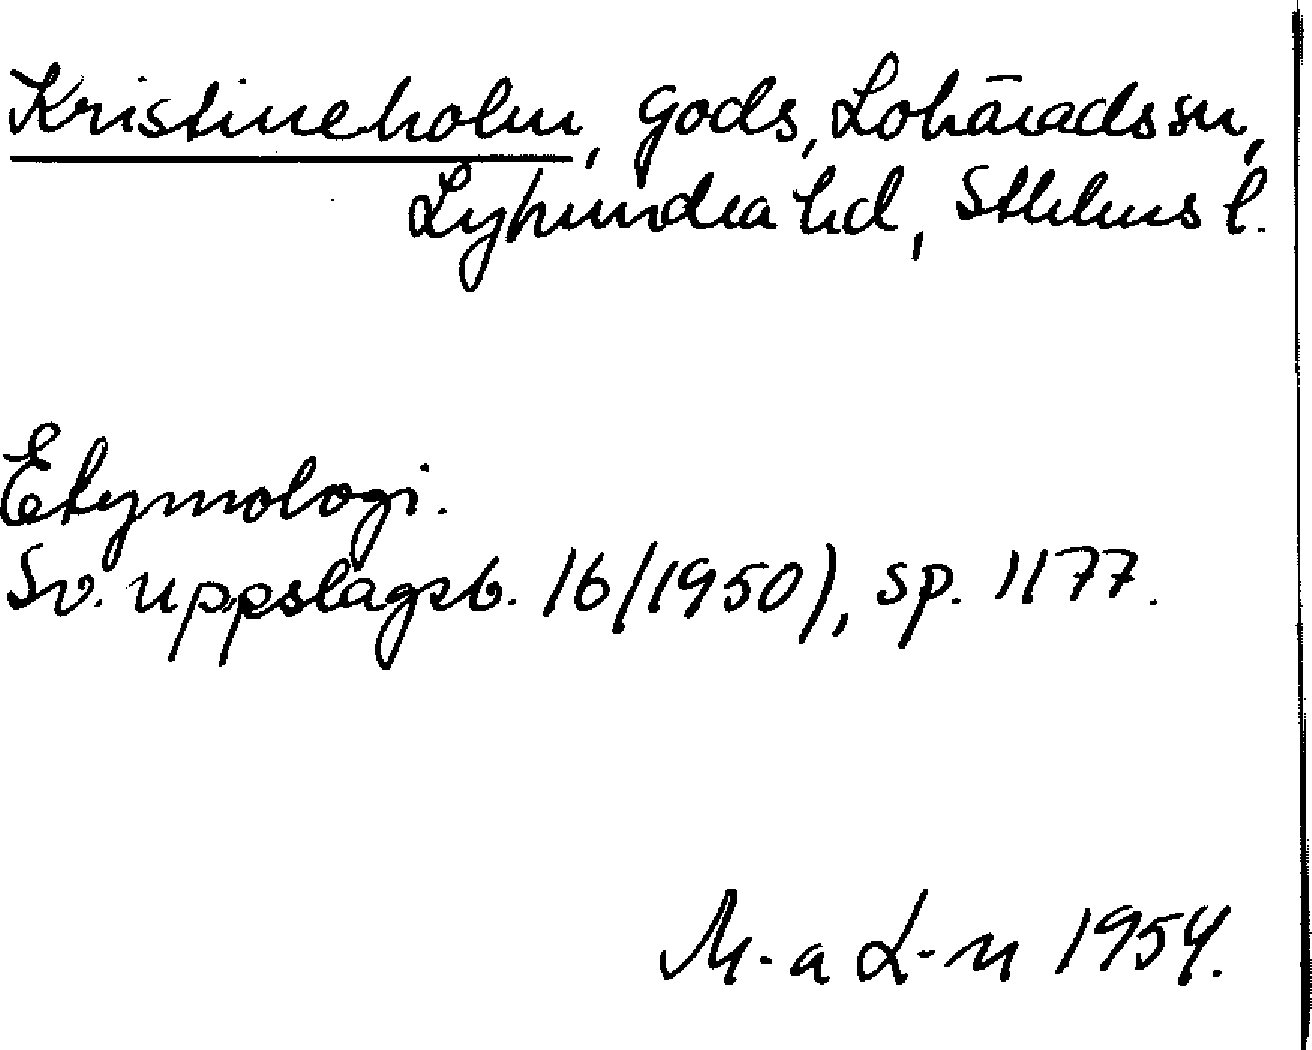 Kristineholm, gods, Lohärads sn,
Lyhundra hd, Sthlms l.
Etymologi.
Sv. uppslagsb. 16/1950), sp. 1177.
M-a L-n 1954.